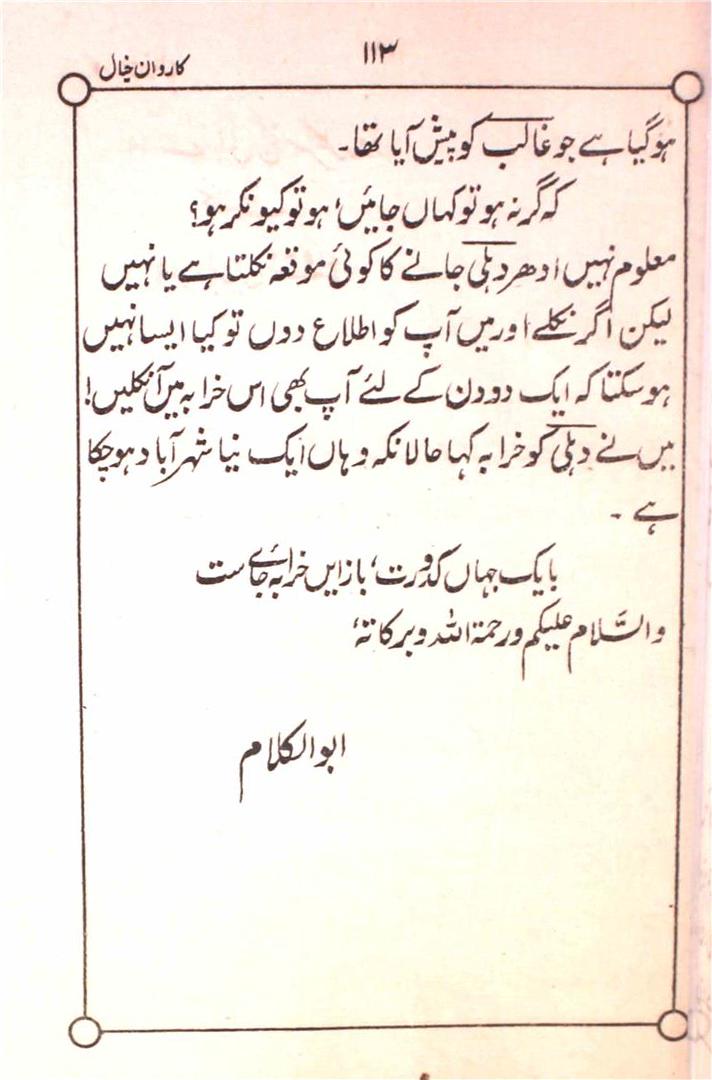 ۱۱۳
کاروان خیال
ہوگیا ہے جو غالب کو پیش آیا تھا۔
کہ گر نہ ہو تو کہاں جائیں، ہو تو کیونکر ہو؟
معلوم نہیں ادھر دہلی جانے کا کوئی موقعہ نکلتا ہے یا نہیں
لیکن اگر نکلے اور میں آپ کو اطلاع دوں تو کیا ایسا نہیں
ہوسکتا کہ ایک دو دن کے لئے آپ بھی اس خرابہ میں آنکلیں!
میں نے دہلی کو خرابہ کہا حالانکہ وہاں ایک نیا شہر آباد ہوچکا
ہے ۔
بایک جہاں کدورت، باز ایں خرابہ جائے ست
والسَّلام علیکم ورحمۃ اللہ وبرکاتہٗ
ابوالکلام